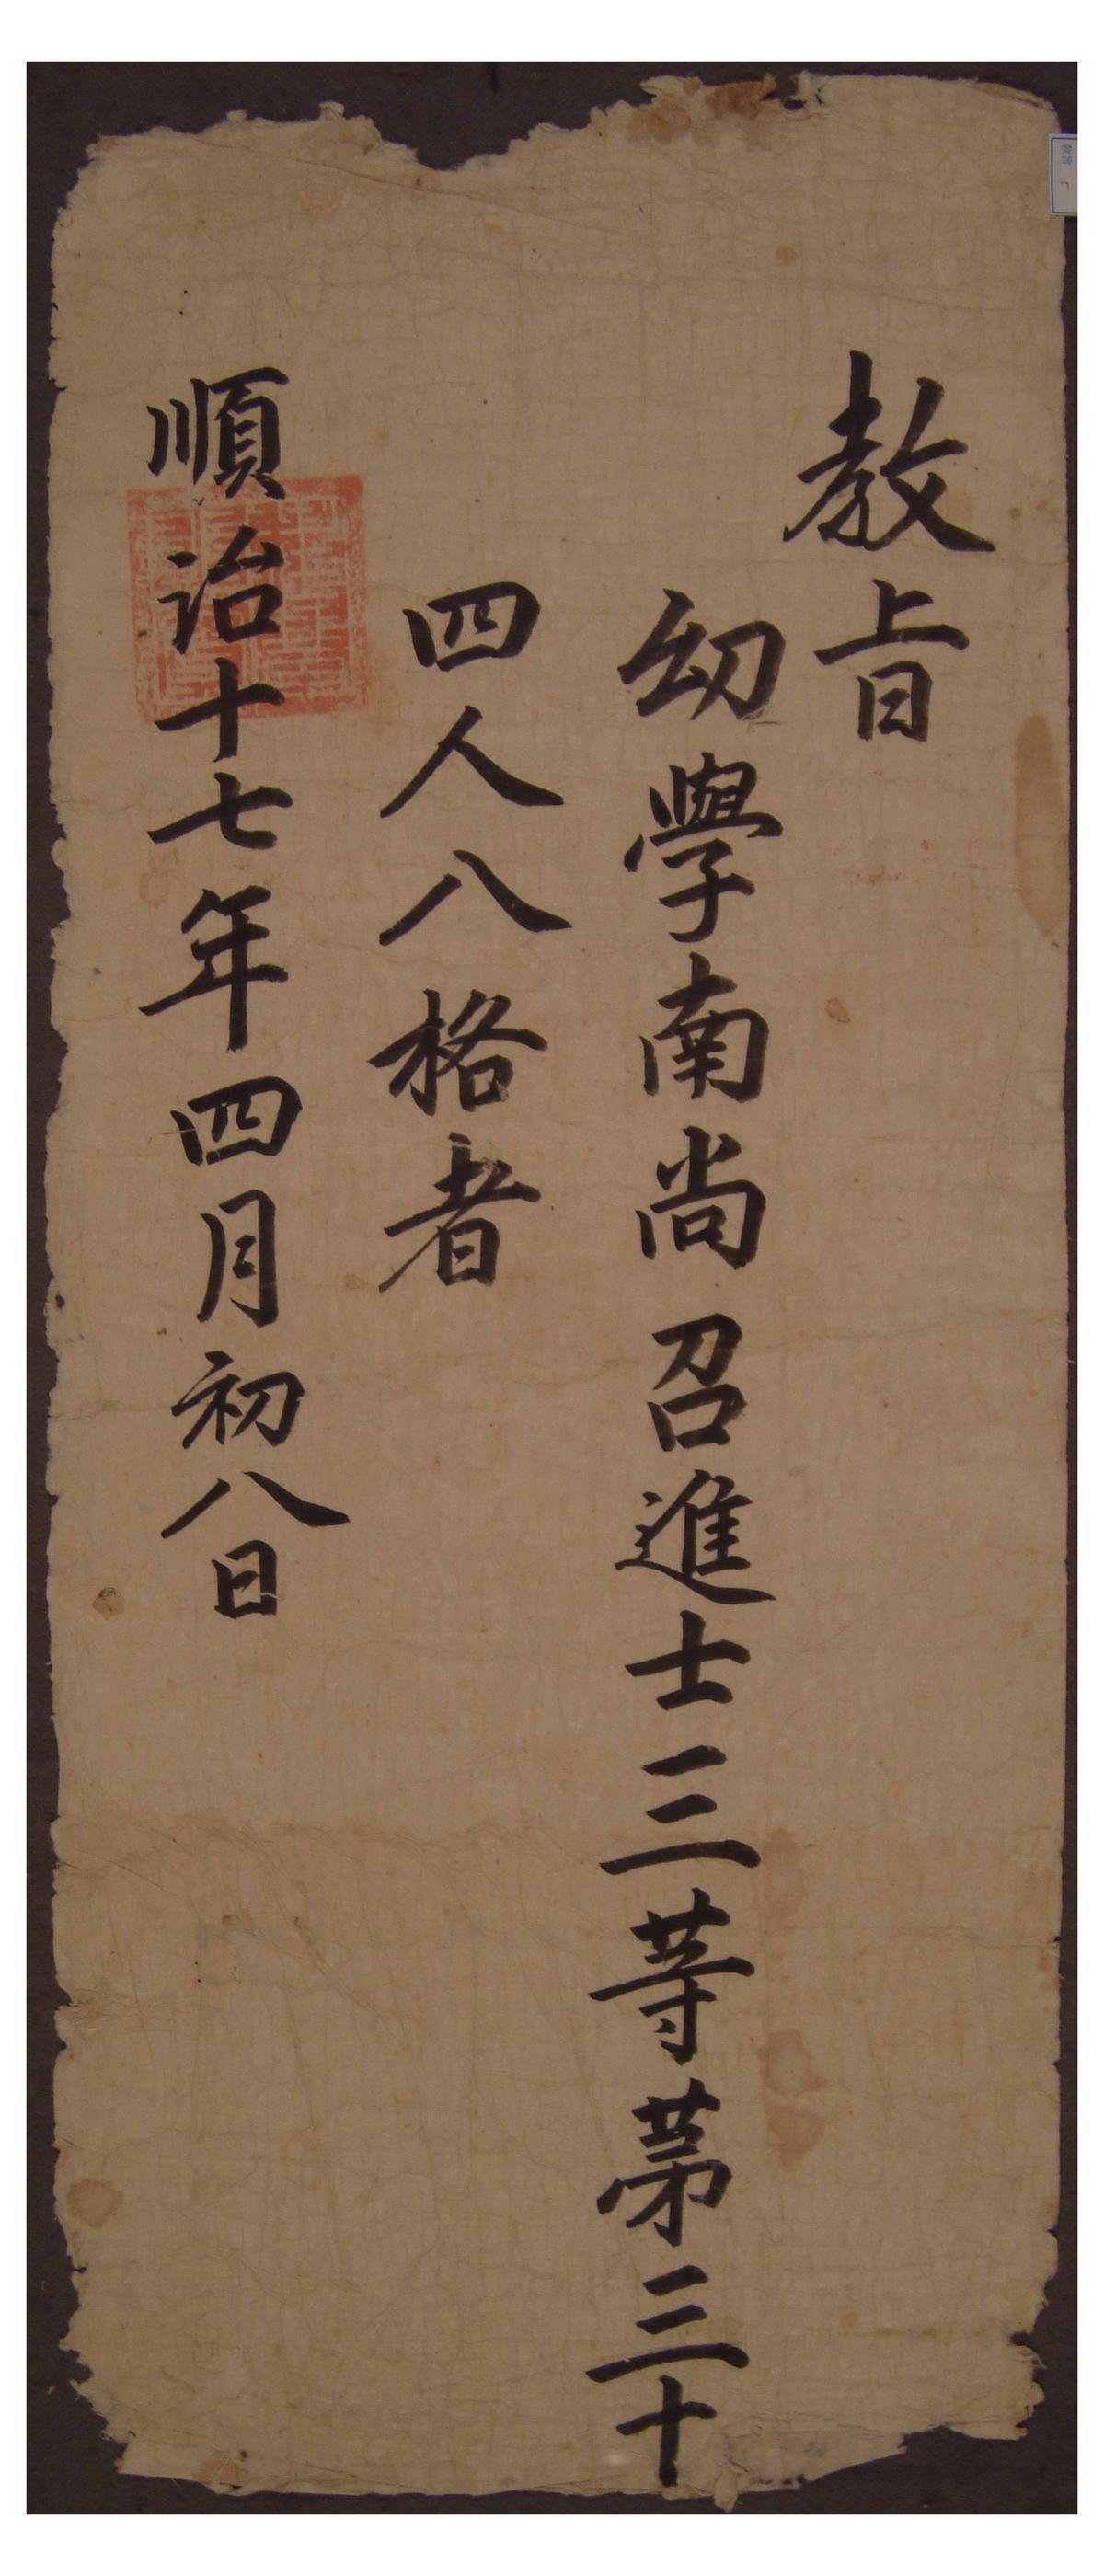 教旨
幼學南尚召進士三等第三十
四人入格者
順治十七年四月初八日